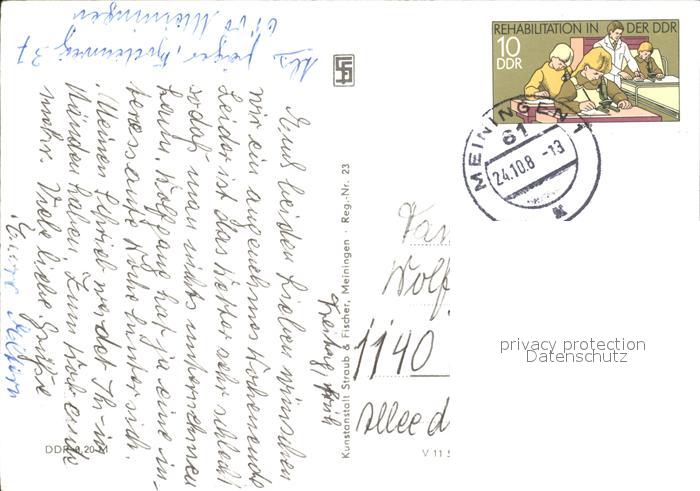 Abs. Jäger,
61 Meiningen
Freitag, früh
Euch beiden Lieben wünschen
wir ein angenehmes Wochenende
Leider ist das Wetter sehr schlecht
sodaß man nichts unternehmen
kann. Wolfgang hat ja eine in-
teressante Woche hinter sich.
Meinen Schrieb werdet Ihr in
Händen haben. Zum Wochenende
mehr. Viele liebe Grüße
Eure Eltern
DDR 0,20 M
Kunstanstalt Straub & Fischer, Meiningen · Reg.-Nr. 23
V 11 5
REHABILITATION IN DER DDR
10
DDR
MEININGEN 1
61
24.10.8 -13
Wolf
1140
Allee d
privacy protection
Datenschutz